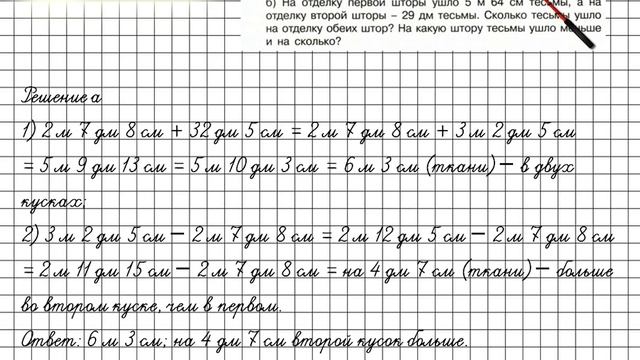 б) На отделку первой шторы ушло 5 м 64 см тесьмы, а на
отделку второй шторы – 29 дм тесьмы. Сколько тесьмы ушло
на отделку обеих штор? На какую штору тесьмы ушло меньше
и на сколько?
Решение а
1) 2 м 7 дм 8 см + 32 дм 5 см = 2 м 7 дм 8 см + 3 м 2 дм 5 см
= 5 м 9 дм 13 см = 5 м 10 дм 3 см = 6 м 3 см (ткани) – в двух
кусках;
2) 3 м 2 дм 5 см – 2 м 7 дм 8 см = 2 м 12 дм 5 см – 2 м 7 дм 8 см
= 2 м 11 дм 15 см – 2 м 7 дм 8 см = на 4 дм 7 см (ткани) – больше
во втором куске, чем в первом.
Ответ: 6 м 3 см; на 4 дм 7 см второй кусок больше.